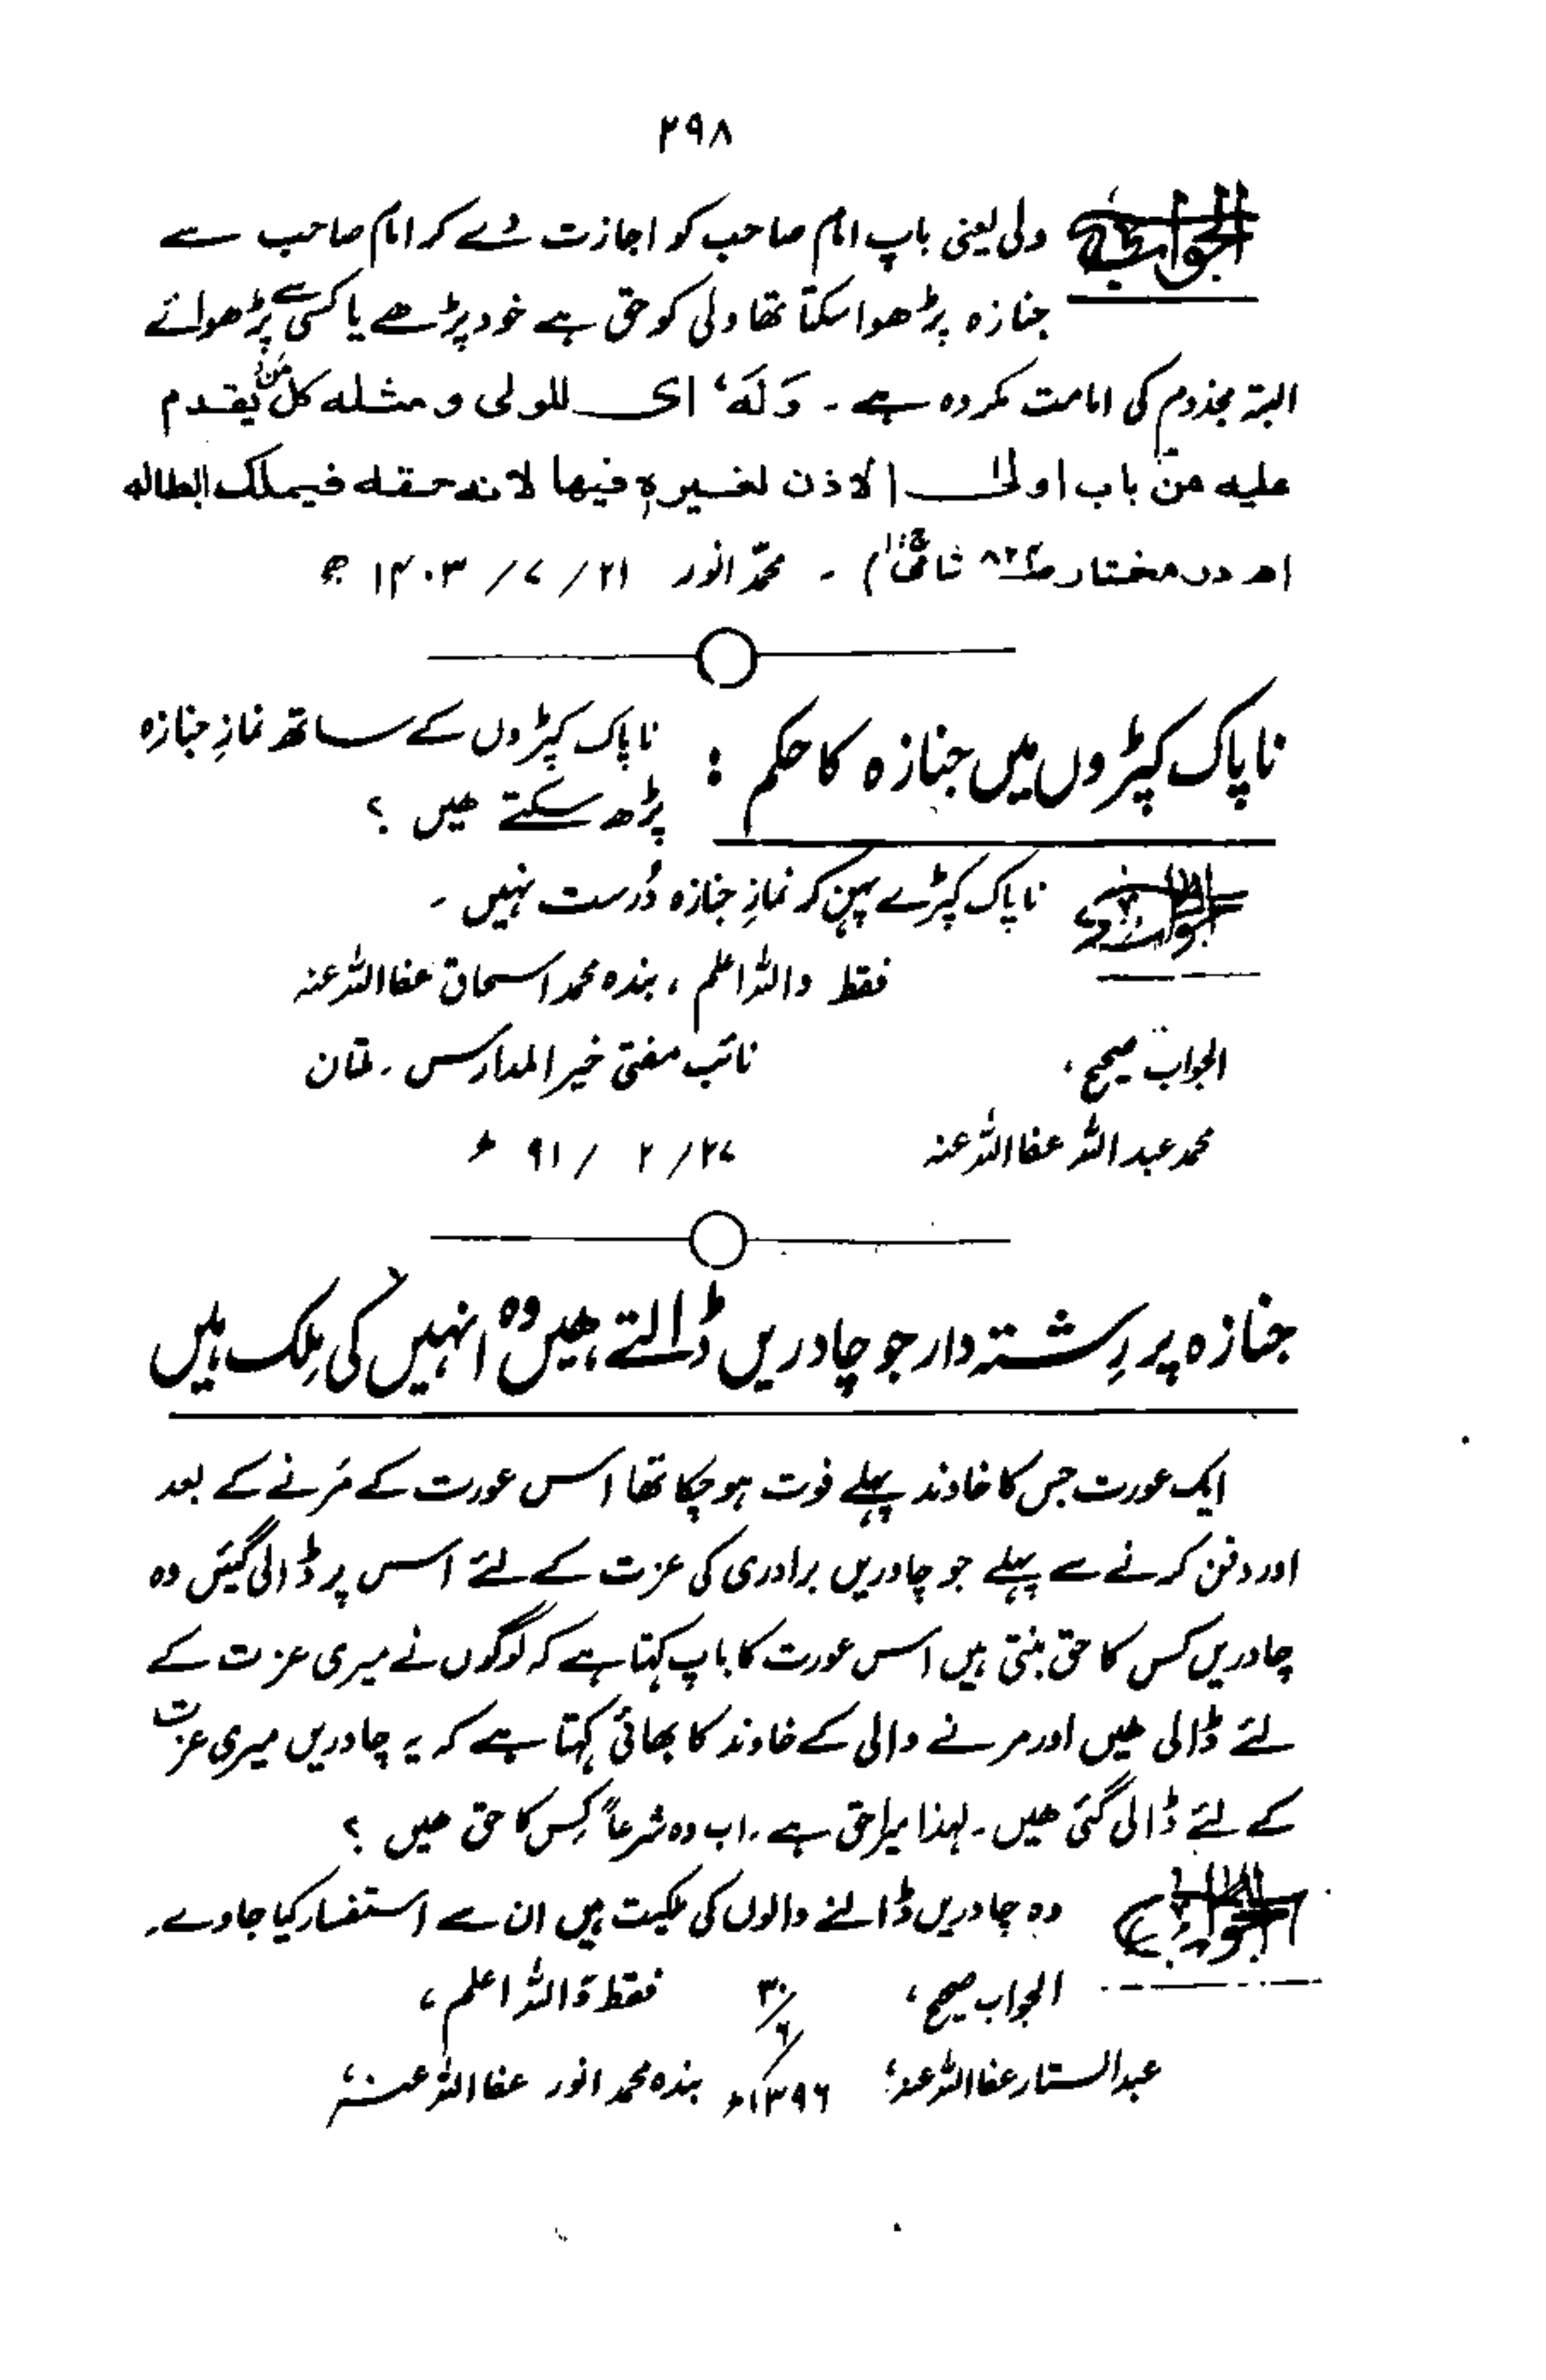 ۲۹۸
الجواب ولی یعنی باپ امام صاحب کو اجازت دے کر امام صاحب سے
جنازہ پڑھوا سکتا تھا ولی کو حق ہے خود پڑھے یا کسی سے پڑھوائے
البتہ مجذوم کی امامت مکروہ ہے ۔ وَلَهٗ ای للولی و مثله کل من یقدم
علیه من باب اولیٰ الاذن لغیرہ فیها لانه حقه فیملک ابطاله
اھ در مختار شامی ج۱) ۔ محمد انور ۲۱/ ۷/ ۱۴۰۳ ھ
ناپاک کپڑوں میں جنازہ کا حکم : ناپاک کپڑوں کے ساتھ نمازِ جنازہ
پڑھ سکتے ھیں ؟
الجواب ناپاک کپڑے پہن کر نمازِ جنازہ دُرست نہیں ۔
فقط واللہ اعلم ، بندہ محمد اسحاق عفا اللہ عنہ
الجواب صحیح ، نائب مفتی خیر المدارس ۔ ملتان
محمد عبد اللہ عفا اللہ عنہ ۲۷/ ۲ /۹۱ ھ
جنازہ پر رِشتہ دار جو چادریں ڈالتے ہیں وہ انہیں کی مِلک ہیں
ایک عورت جس کا خاوند پہلے فوت ہو چکا تھا اس عورت کے مَرنے کے بعد
اور دفن کرنے سے پہلے جو چادریں برادری کی عزت کے لئے اس پر ڈالی گئیں وہ
چادریں کس کا حق بنتی ہیں اس عورت کا باپ کہتا ہے کہ لوگوں نے میری عزت کے
لئے ڈالی ھیں اور مرنے والی کے خاوند کا بھائی کہتا ہے کہ یہ چادریں میری عزت
کے لئے ڈالی گئی ھیں ۔ لہذا میرا حق ہے ۔ اب وہ شرعاً کِس کا حق ھیں ؟
الجواب وہ چادریں ڈالنے والوں کی ملکیت ہیں ان سے استفسار کیا جاوے۔
الجواب صحیح ، ۳۰/۶ فقط واللہ اعلم ،
عبد الستار عفا اللہ عنہ ، ۱۳۹۶ھ بندہ محمد انور عفا اللہ عنہ ،